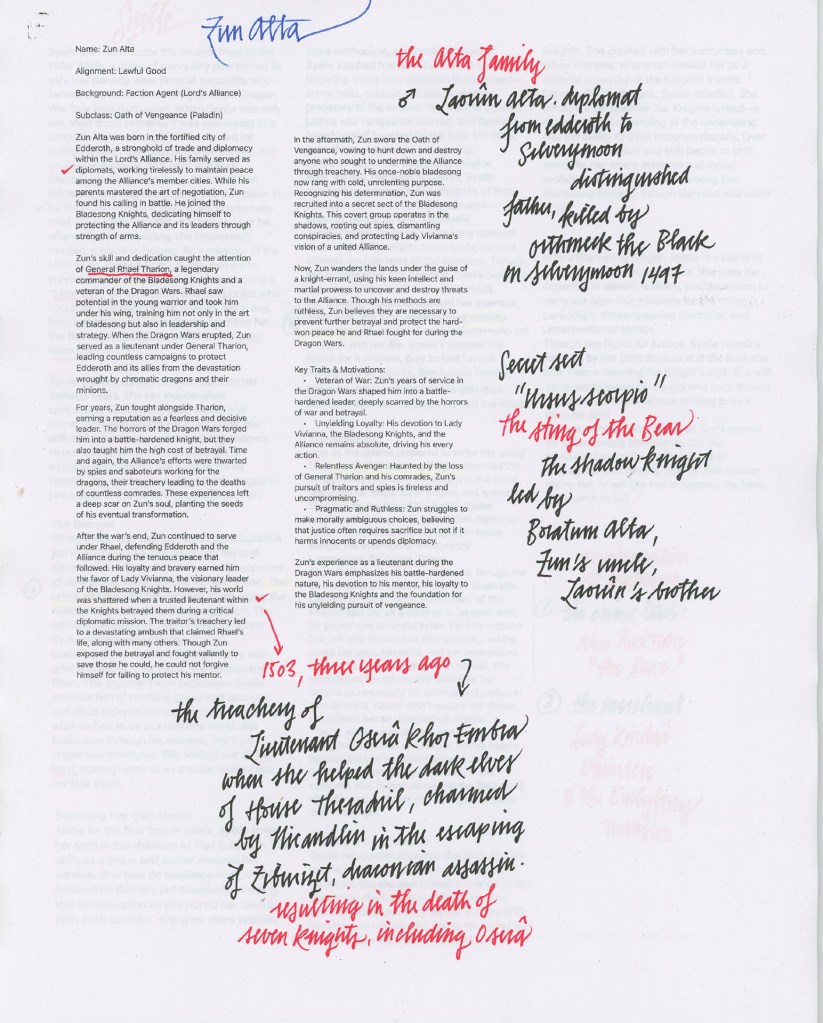 Zun Alta
Name: Zun Alta
Alignment: Lawful Good
Background: Faction Agent (Lord's Alliance)
Subclass: Oath of Vengeance (Paladin)
Zun Alta was born in the fortified city of
Edderoth, a stronghold of trade and diplomacy
within the Lord's Alliance. His family served as
diplomats, working tirelessly to maintain peace
among the Alliance's member cities. While his
parents mastered the art of negotiation, Zun
found his calling in battle. He joined the
Bladesong Knights, dedicating himself to
protecting the Alliance and its leaders through
strength of arms.
Zun's skill and dedication caught the attention
of General Rhael Tharion, a legendary
commander of the Bladesong Knights and a
veteran of the Dragon Wars. Rhael saw
potential in the young warrior and took him
under his wing, training him not only in the art
of bladesong but also in leadership and
strategy. When the Dragon Wars erupted, Zun
served as a lieutenant under General Tharion,
leading countless campaigns to protect
Edderoth and its allies from the devastation
wrought by chromatic dragons and their
minions.
For years, Zun fought alongside Tharion,
earning a reputation as a fearless and decisive
leader. The horrors of the Dragon Wars forged
him into a battle-hardened knight, but they
also taught him the high cost of betrayal. Time
and again, the Alliance's efforts were thwarted
by spies and saboteurs working for the
dragons, their treachery leading to the deaths
of countless comrades. These experiences left
a deep scar on Zun's soul, planting the seeds
of his eventual transformation.
After the war's end, Zun continued to serve
under Rhael, defending Edderoth and the
Alliance during the tenuous peace that
followed. His loyalty and bravery earned him
the favor of Lady Vivianna, the visionary leader
of the Bladesong Knights. However, his world
was shattered when a trusted lieutenant within
the Knights betrayed them during a critical
diplomatic mission. The traitor's treachery led
to a devastating ambush that claimed Rhael's
life, along with many others. Though Zun
exposed the betrayal and fought valiantly to
save those he could, he could not forgive
himself for failing to protect his mentor.
In the aftermath, Zun swore the Oath of
Vengeance, vowing to hunt down and destroy
anyone who sought to undermine the Alliance
through treachery. His once-noble bladesong
now rang with cold, unrelenting purpose.
Recognizing his determination, Zun was
recruited into a secret sect of the Bladesong
Knights. This covert group operates in the
shadows, rooting out spies, dismantling
conspiracies, and protecting Lady Vivianna's
vision of a united Alliance.
Now, Zun wanders the lands under the guise of
a knight-errant, using his keen intellect and
martial prowess to uncover and destroy threats
to the Alliance. Though his methods are
ruthless, Zun believes they are necessary to
prevent further betrayal and protect the hard-
won peace he and Rhael fought for during the
Dragon Wars.
Key Traits & Motivations:
• Veteran of War: Zun's years of service in
the Dragon Wars shaped him into a battle-
hardened leader, deeply scarred by the horrors
of war and betrayal.
• Unyielding Loyalty: His devotion to Lady
Vivianna, the Bladesong Knights, and the
Alliance remains absolute, driving his every
action.
• Relentless Avenger: Haunted by the loss
of General Tharion and his comrades, Zun's
pursuit of traitors and spies is tireless and
uncompromising.
• Pragmatic and Ruthless: Zun struggles to
make morally ambiguous choices, believing
that justice often requires sacrifice but not if it
harms innocents or upends diplomacy.
Zun's experience as a lieutenant during the
Dragon Wars emphasizes his battle-hardened
nature, his devotion to his mentor, his loyalty to
the Bladesong Knights and the foundation for
his unyielding pursuit of vengeance.
the Alta family
♂ Laoriûn Alta. diplomat
from edderoth to
Silverymoon
distinguished
father, killed by
the Black
on Silverymoon 1497
Secret sect
"Ursus scorpio"
the sting of the Bear
the shadow knight
led by
Boratum Alta,
Zun's uncle,
Laoriûn's brother
1503, three years ago
the treachery of
Lieutenant Oseiâ Khor Embra
when she helped the dark elves
of House Thesadriil, charmed
by Nicandlin in the escaping
of draconian assassin.
resulting in the death of
seven knights, including Oseiâ